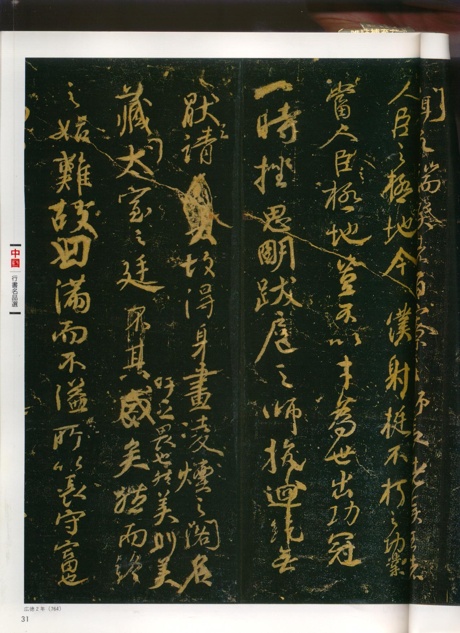 之端揆者百寮之師長諸侯王者
人臣之極地今僕射挺不朽之功業
當人臣極地豈不以才為世出功冠
一時挫思明跋扈之師抗迴紇無
厭之請故得身畫凌煙之閣名
藏太室之廷
吁足畏也然美則美
矣然而終
之始難故曰滿而不溢所以長守富也
中国
行書名品選
広徳2年(764)
31